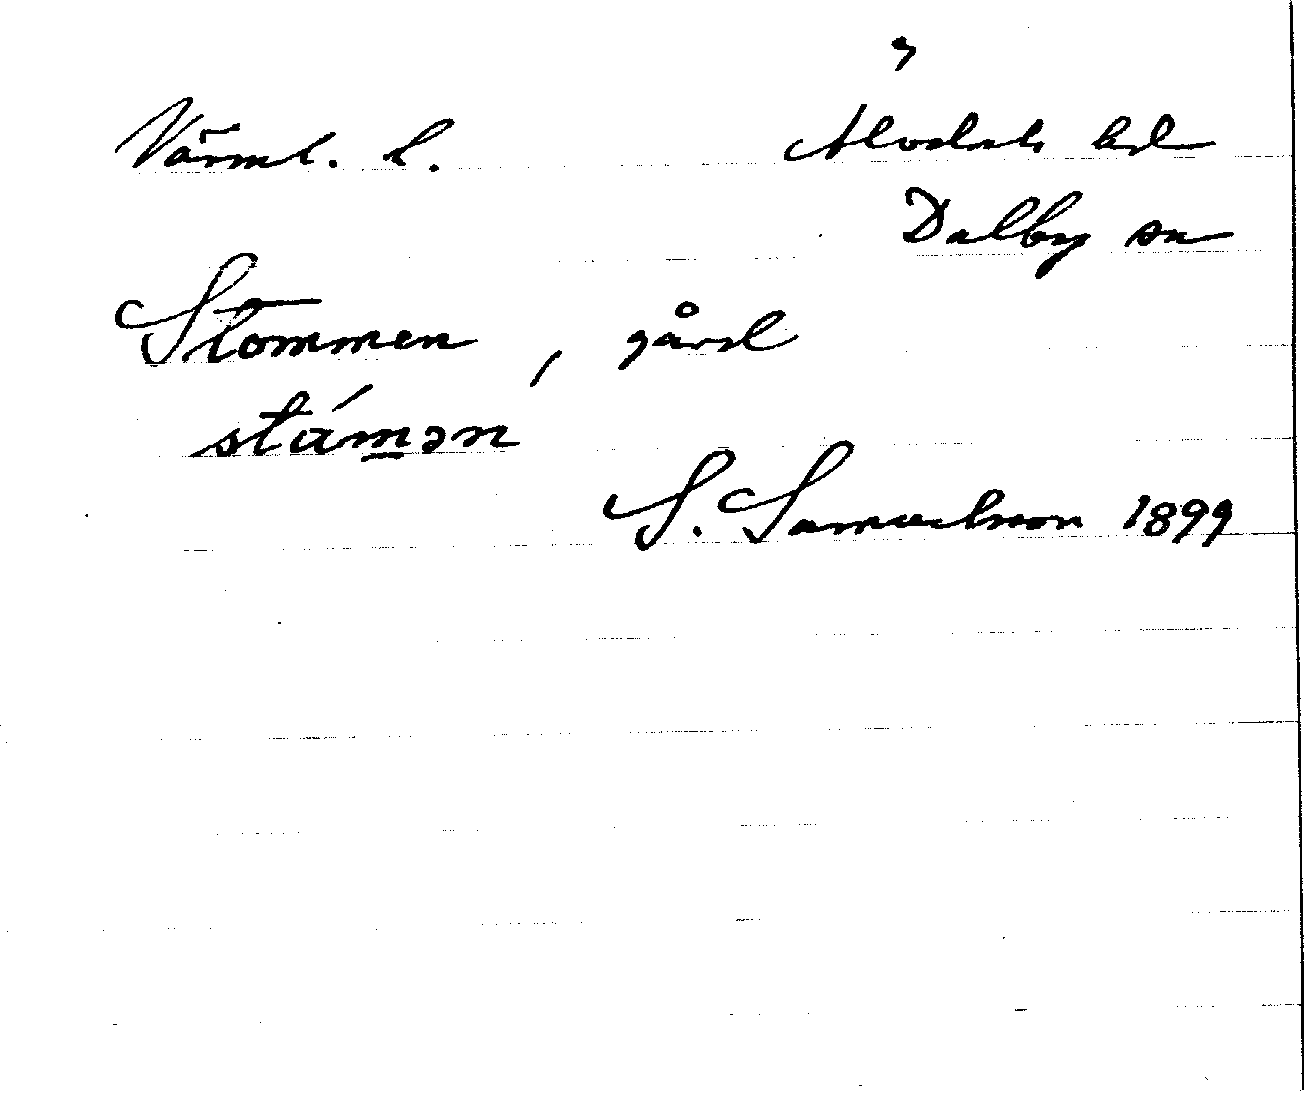 Värml. l. Älvdals hd
Dalby sn
Stommen, gård
stámən
S. Samuelsson 1899